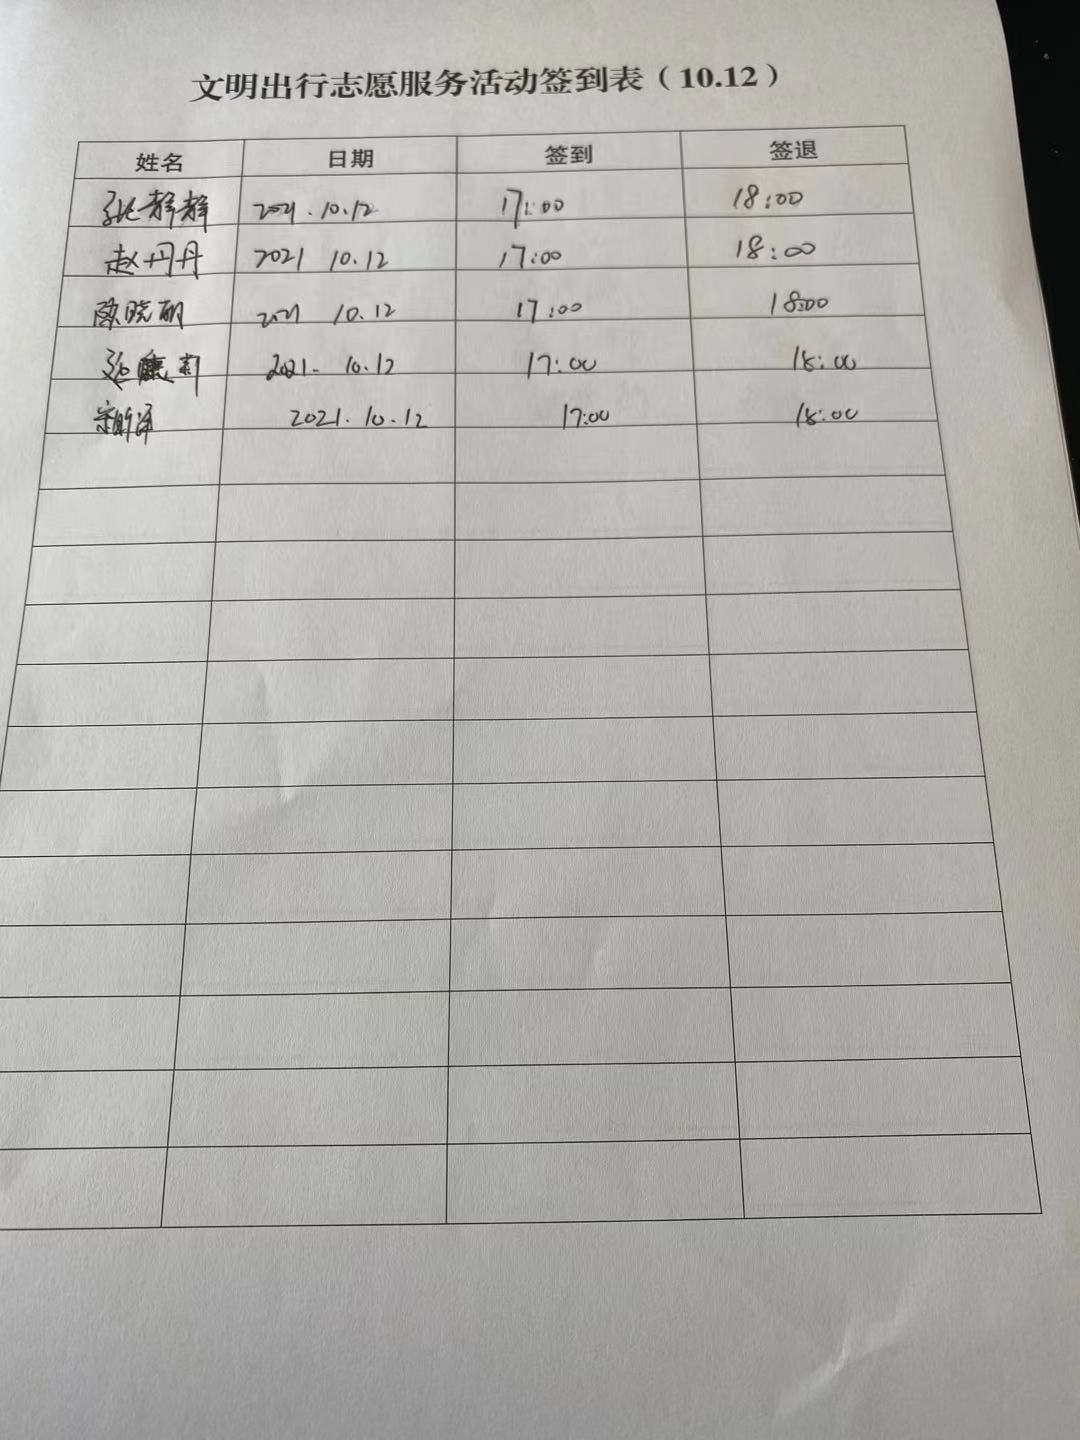 文明出行志愿服务活动签到表（10.12）
姓名 日期 签到 签退
张静静 2021.10.12 17:00 18:00
赵丹丹 2021 10.12 17:00 18:00
陈晓丽 2021 10.12 17:00 18:00
2021. 10.12 17:00 18:00
2021.10.12 17:00 18:00